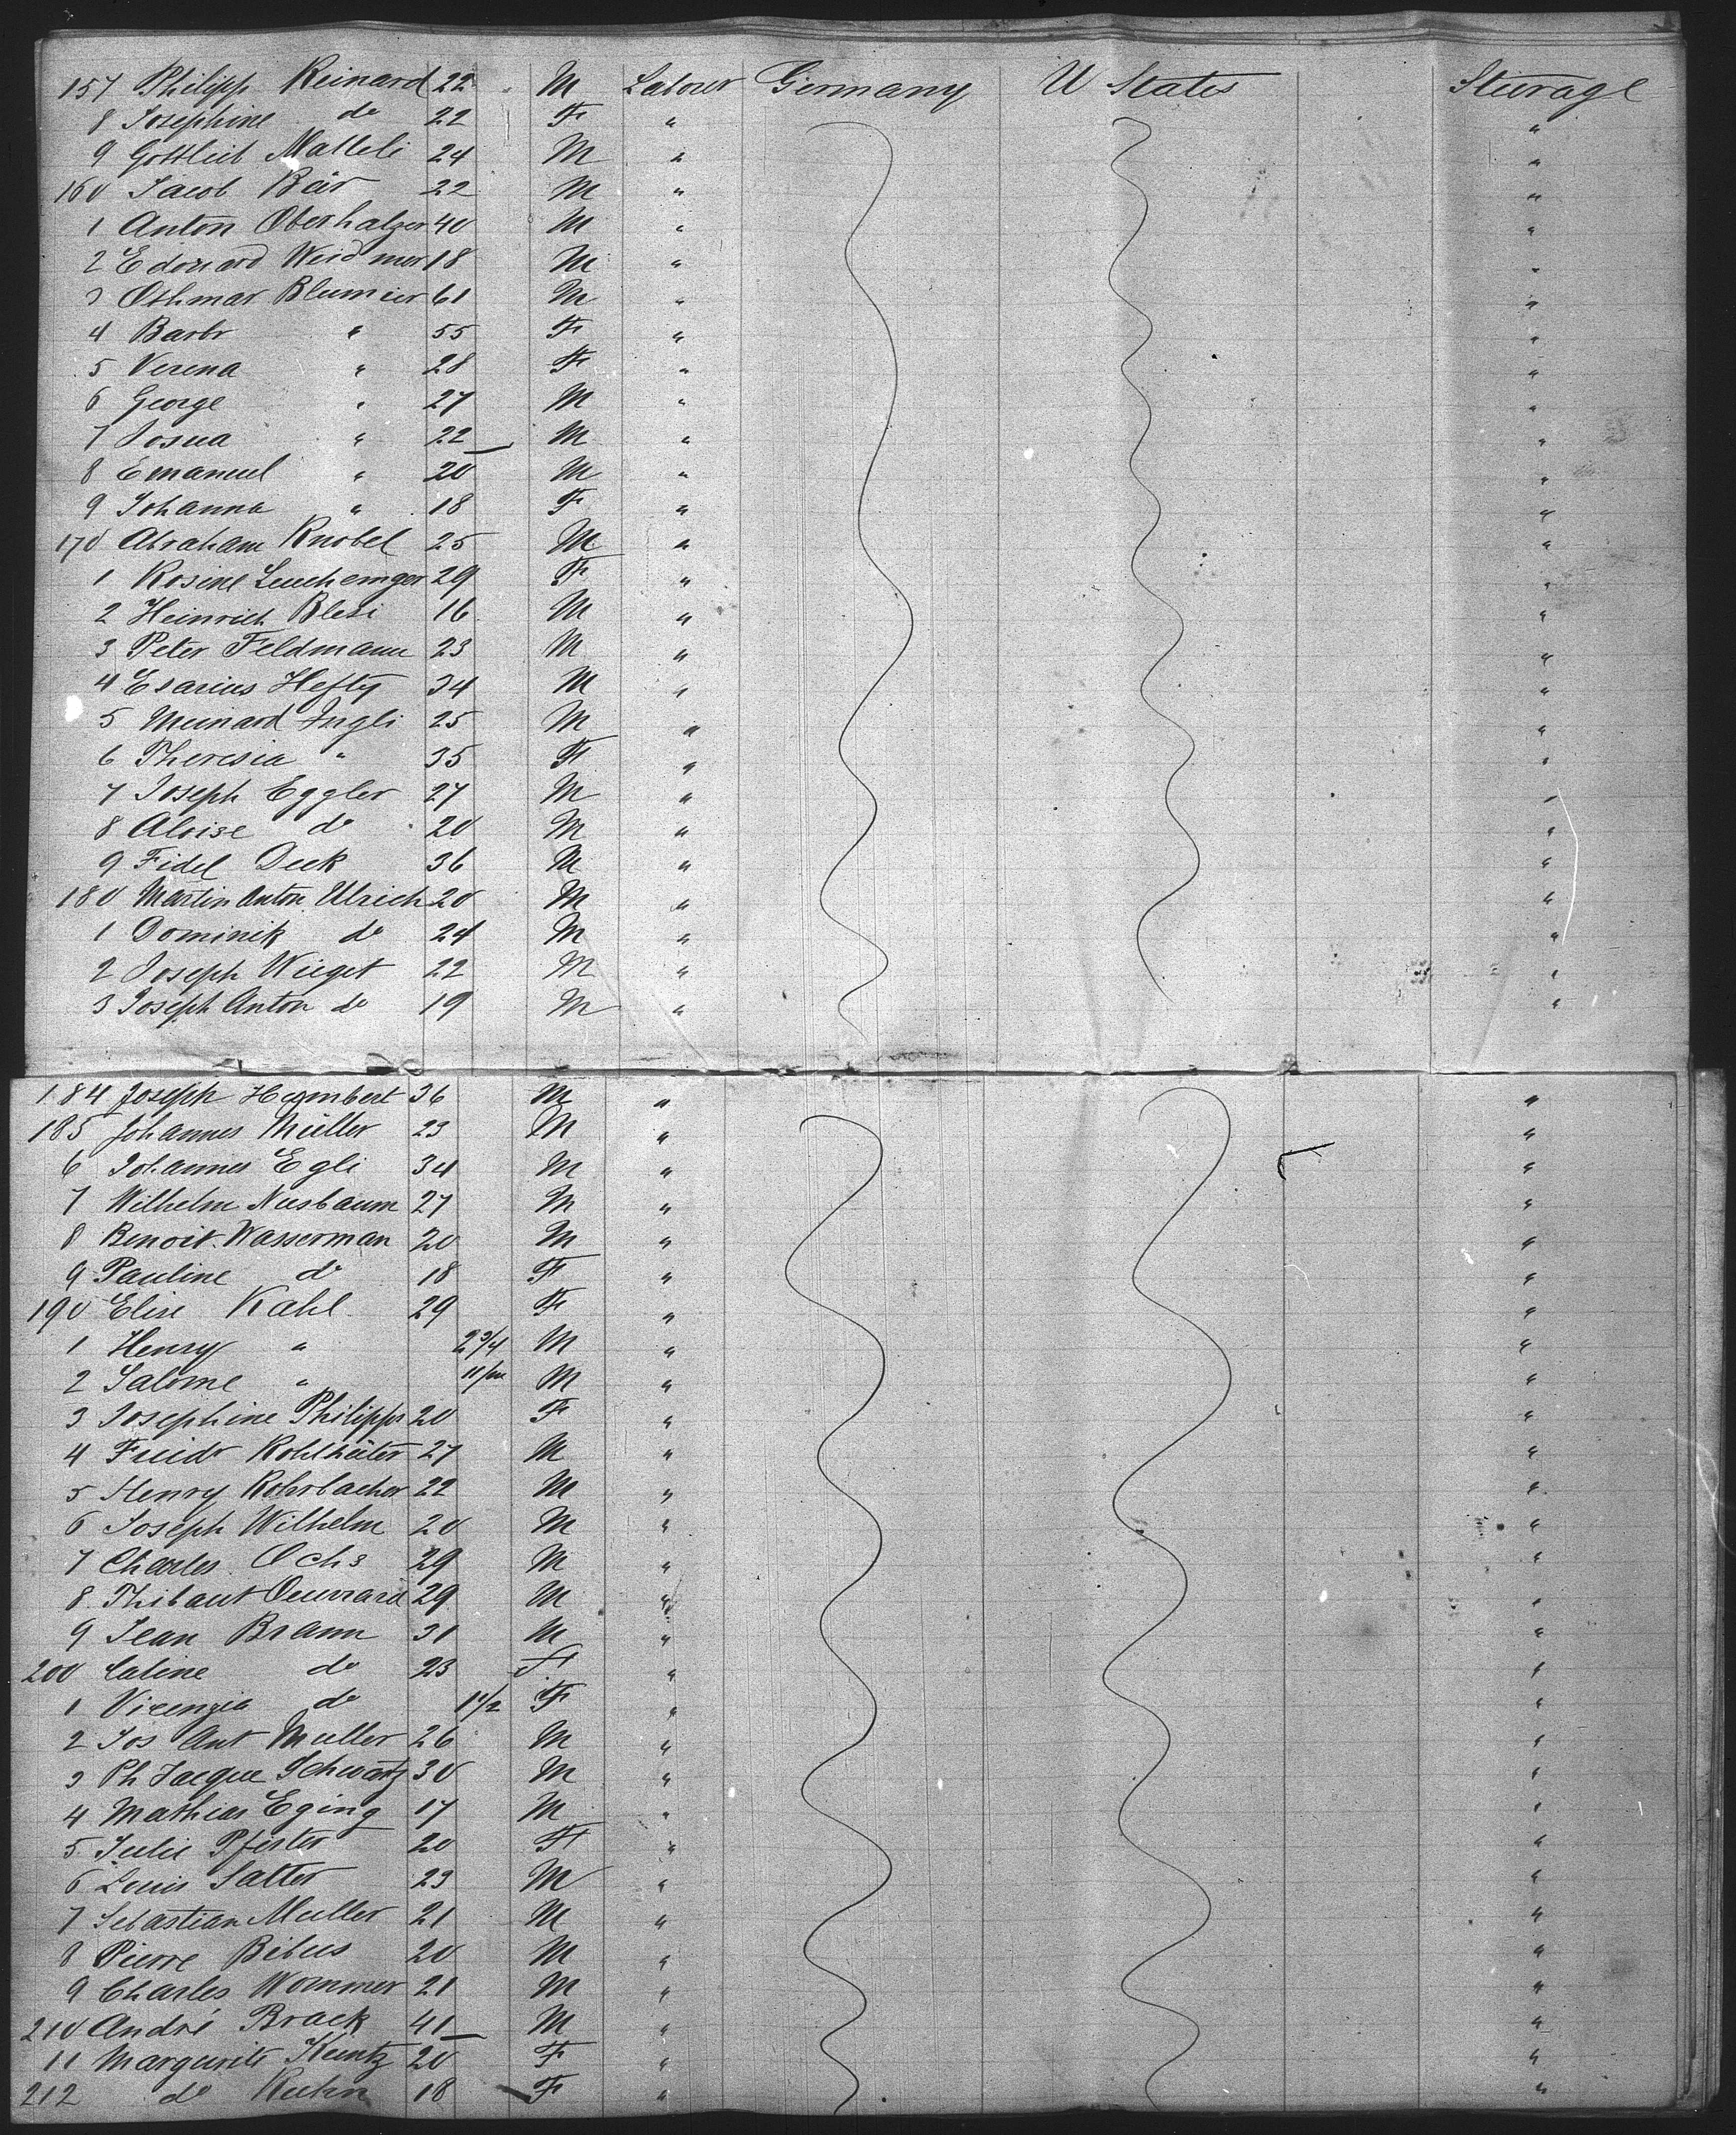 157 Philipp Reinard 22 M Labour Germany U States Steerage
8 Josephine do 22 F " "
9 Gottlieb Matteli 24 M " "
160 Jacob Bär 22 M " "
1 Anton Oberhalzer 40 M " "
2 Edouard Weidmer 18 M " "
3 Othmar Blumier 61 M " "
4 Barbr " 55 F " "
5 Verena " 28 F " "
6 George " 27 M " "
7 Josua " 22 M " "
8 Emanuel " 20 M " "
9 Johanna " 18 F " "
170 Abraham Knobel 25 M " "
1 Rosine Leuchemger 29 F " "
2 Heinrich Blesi 16 M " "
3 Peter Feldmann 23 M " "
4 Esarius Hefty 34 M " "
5 Meinard Ingli 25 M " "
6 Theresia " 35 F " "
7 Joseph Eggler 27 M " "
8 Aloise do 20 M " "
9 Fidel Deck 36 M " "
180 Martin Anton Ulrich 20 M " "
1 Dominik do 24 M " "
2 Joseph Wieget 22 M " "
3 Joseph Anton do 19 M " "
184 Joseph Hembert 36 M " "
185 Johannes Müller 23 M " "
6 Johannes Egli 34 M " "
7 Wilhelm Nusbaum 27 M " "
8 Benoit Wasserman 20 M " "
9 Pauline do 18 F " "
190 Elise Kahl 29 F " "
1 Henry " 2 3/4 M " "
2 Salome " 11/m M " "
3 Josephine Philipps 20 F " "
4 Friedr Kohlhüter 27 M " "
5 Henry Rohrbacher 22 M " "
6 Joseph Wilhelm 20 M " "
7 Charles Ochs 29 M " "
8 Thibaut Oeuvrard 29 M " "
9 Jean Bramm 31 M " "
200 Caline do 23 F " "
1 Vicenzia do 1 1/2 F " "
2 Jos Ant Muller 26 M " "
3 Ph Jacque Schwartz 30 M " "
4 Mathias Eging 17 M " "
5 Julie Pfister 20 F " "
6 Louis Satter 23 M " "
7 Sebastian Muller 21 M " "
8 Pierre Bibus 20 M " "
9 Charles Wommer 21 M " "
210 André Brack 41 M " "
11 Marguerite Kuntz 20 F " "
212 do Kuhn 18 F " "